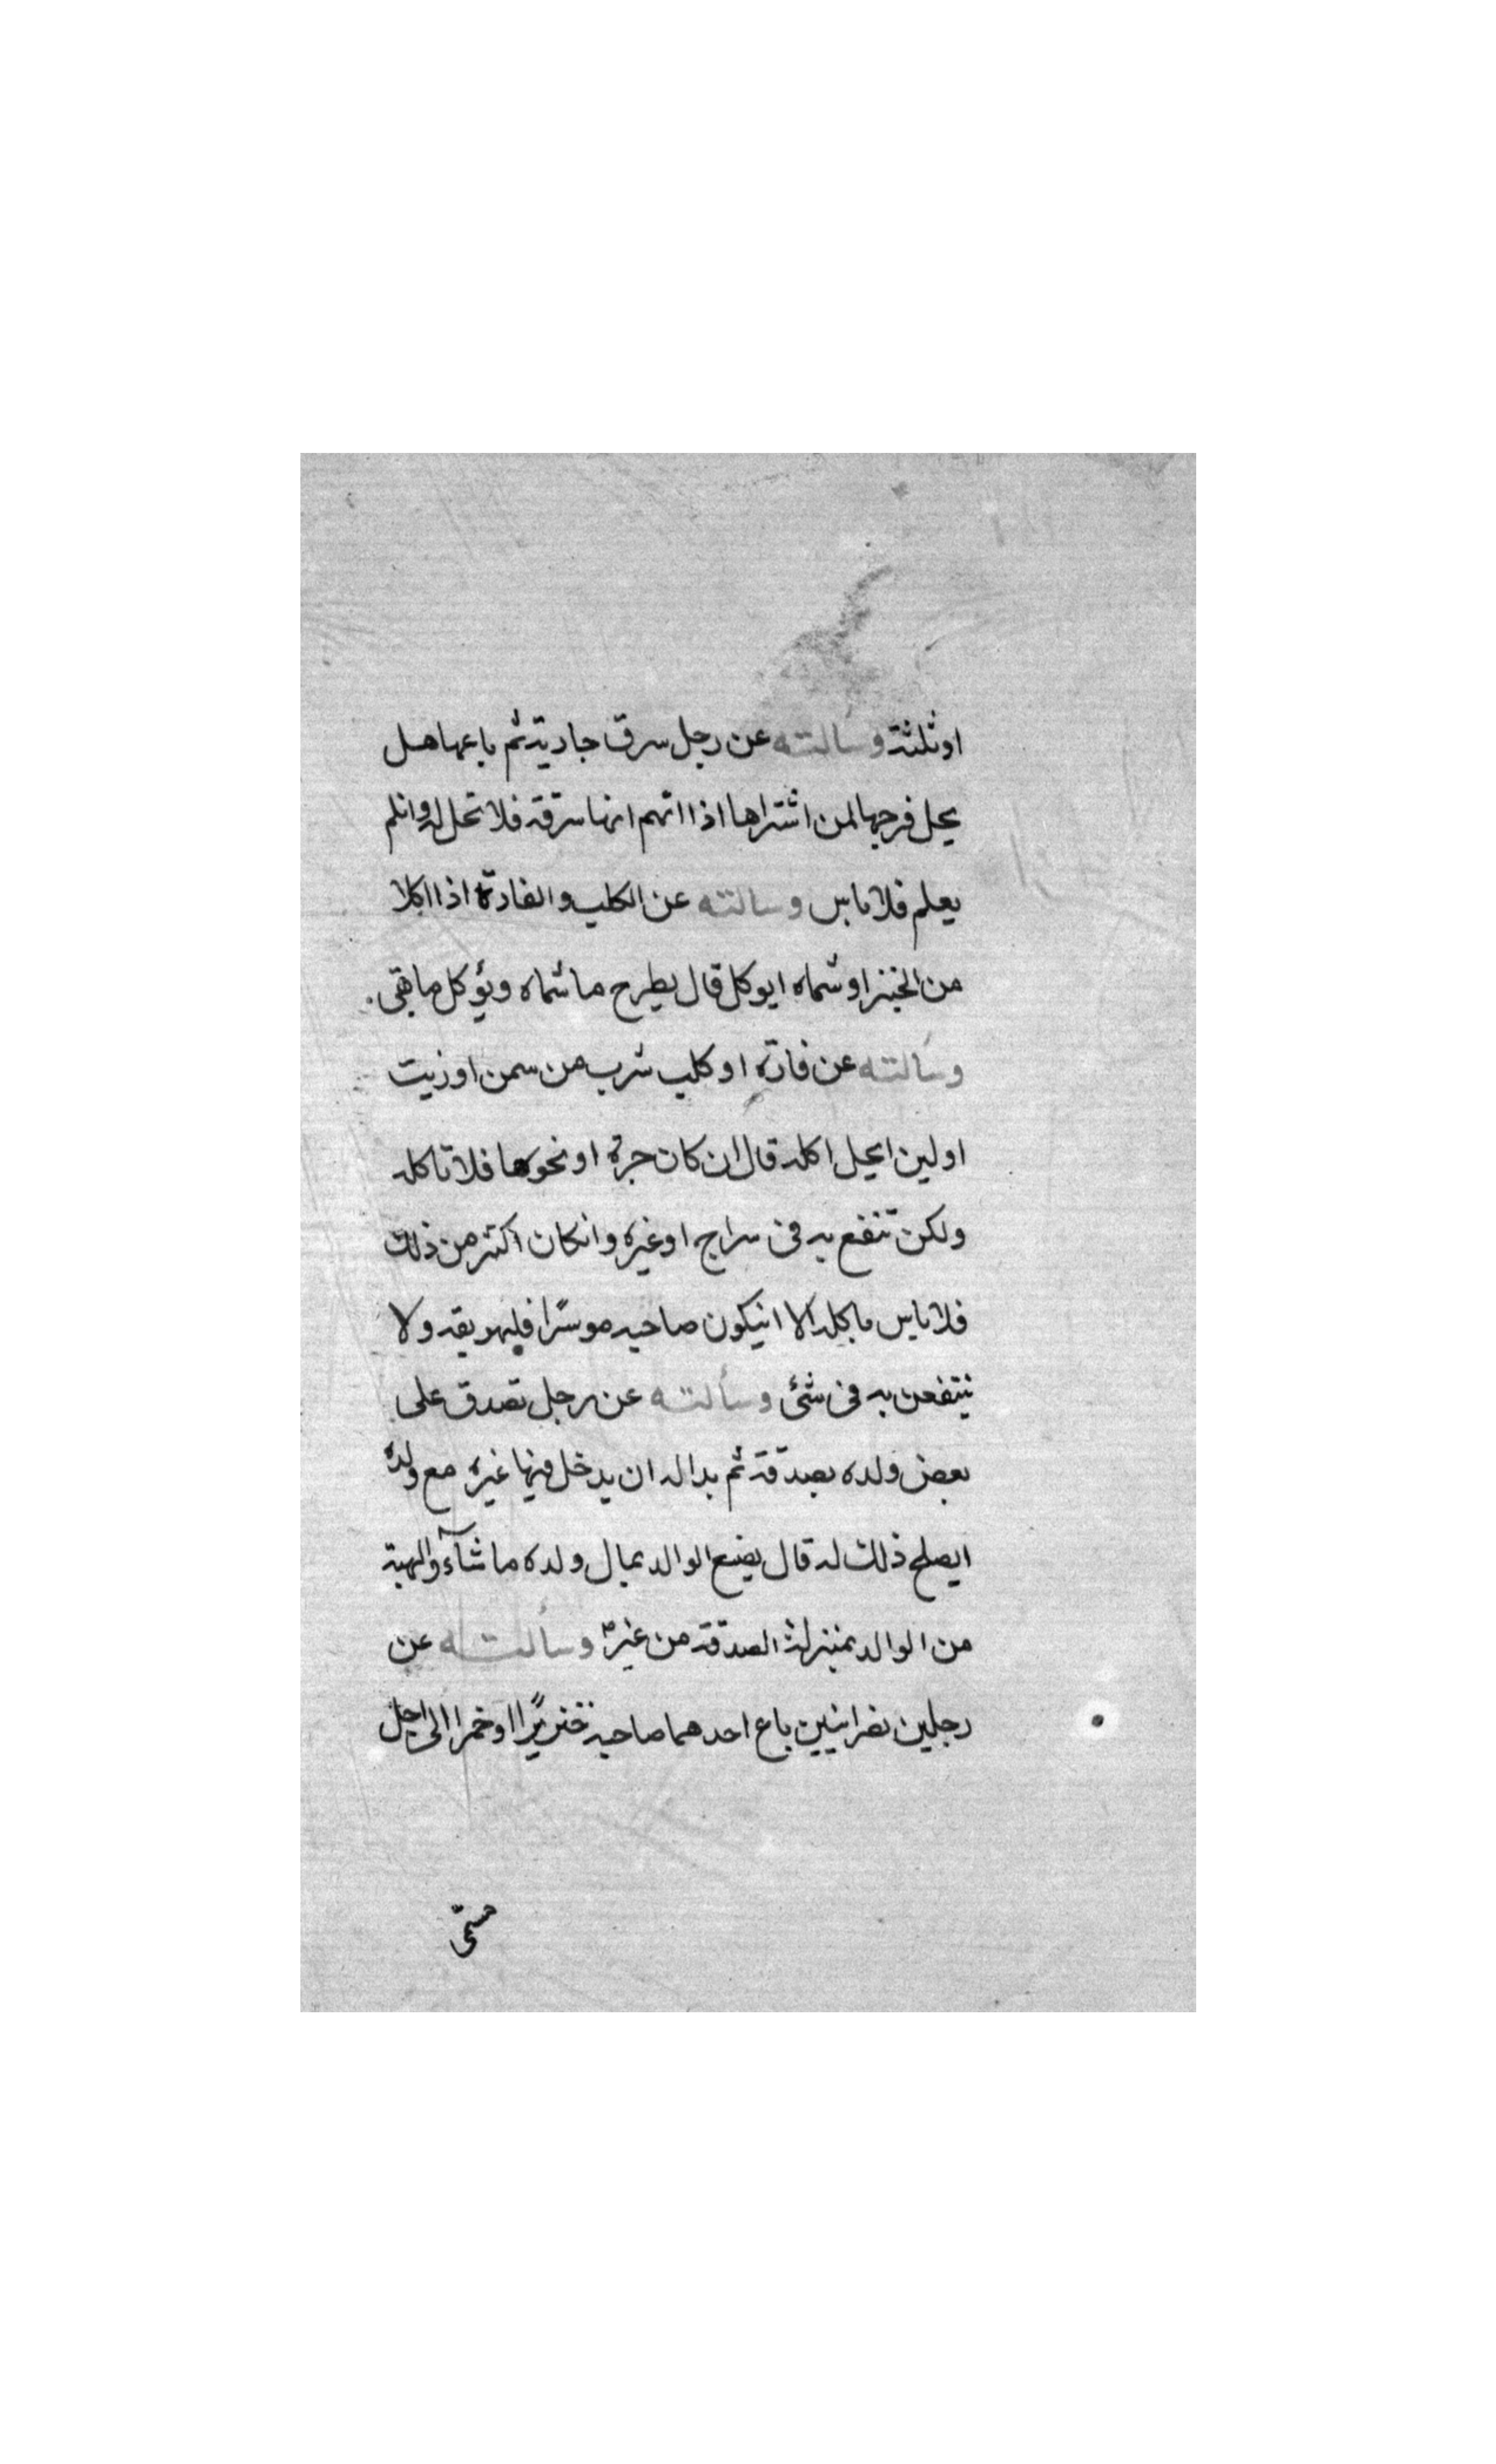 اوثلثة وسالته عن رجل سرق جارية ثم باعها هل
يحل فرجها لمن اشتراها اذا اتهم انها سرقة فلا تحل له وانلم
يعلم فلا باس وسالته عن الكلب والفارة اذا اكلا
من الخبز او شماه ايوكل قال يطرح ما شماه ويؤكل ما بقى.
وسالته عن فارة او كلب شرب من سمن اوزيت
اولبن ايحل اكله قال ان كان جرة او نحوها فلا تاكله
ولكن تنفع به فى سراج اوغيره وانكان اكثر من ذلك
فلا باس باكله الا انيكون صاحبه موسرًا فليهريقه ولا
ينتفعن به فى شئ وسألته عن رجل تصدق على
بعض ولده بصدقة ثم بداله ان يدخل فيها غيره مع ولده
ايصلح ذلك له قال يضع الوالد بمال ولده ما شآء والهبة
من الوالد بمنزلة الصدقة من غيره وسألته عن
رجلين نصرانيين باع احدهما صاحبه خنزيرًا اوخمرا الى اجل
مسمّى